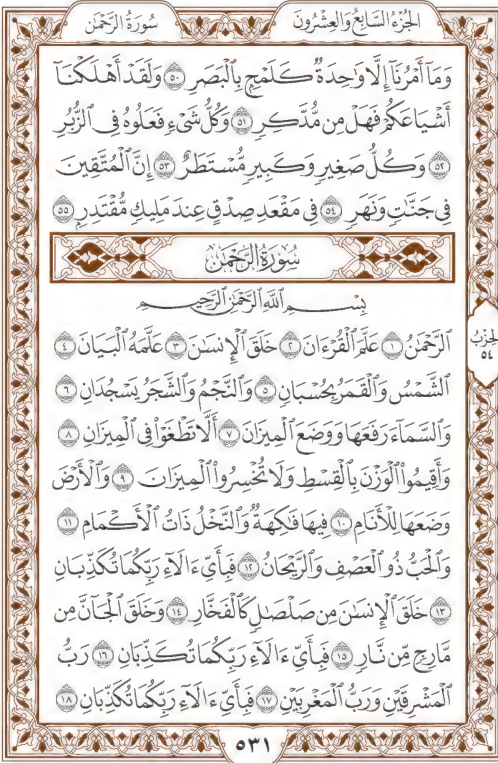 الجزء السابع والعشرون
سورة الرحمن
وَمَآ أَمْرُنَآ إِلَّا وَٰحِدَةٌ كَلَمْحٍۭ بِٱلْبَصَرِ ٥٠ وَلَقَدْ أَهْلَكْنَآ
أَشْيَاعَكُمْ فَهَلْ مِن مُّدَّكِرٍ ٥١ وَكُلُّ شَىْءٍ فَعَلُوهُ فِى ٱلزُّبُرِ
٥٢ وَكُلُّ صَغِيرٍ وَكَبِيرٍ مُّسْتَطَرٌ ٥٣ إِنَّ ٱلْمُتَّقِينَ
فِى جَنَّٰتٍ وَنَهَرٍ ٥٤ فِى مَقْعَدِ صِدْقٍ عِندَ مَلِيكٍ مُّقْتَدِرٍۭ ٥٥
سُورَةُ الرَّحْمَٰن
بِسْمِ ٱللَّهِ ٱلرَّحْمَٰنِ ٱلرَّحِيمِ
ٱلرَّحْمَٰنُ ١ عَلَّمَ ٱلْقُرْءَانَ ٢ خَلَقَ ٱلْإِنسَٰنَ ٣ عَلَّمَهُ ٱلْبَيَانَ ٤
ٱلشَّمْسُ وَٱلْقَمَرُ بِحُسْبَانٍ ٥ وَٱلنَّجْمُ وَٱلشَّجَرُ يَسْجُدَانِ ٦
وَٱلسَّمَآءَ رَفَعَهَا وَوَضَعَ ٱلْمِيزَانَ ٧ أَلَّا تَطْغَوْا۟ فِى ٱلْمِيزَانِ ٨
وَأَقِيمُوا۟ ٱلْوَزْنَ بِٱلْقِسْطِ وَلَا تُخْسِرُوا۟ ٱلْمِيزَانَ ٩ وَٱلْأَرْضَ
وَضَعَهَا لِلْأَنَامِ ١٠ فِيهَا فَٰكِهَةٌ وَٱلنَّخْلُ ذَاتُ ٱلْأَكْمَامِ ١١
وَٱلْحَبُّ ذُو ٱلْعَصْفِ وَٱلرَّيْحَانُ ١٢ فَبِأَىِّ ءَالَآءِ رَبِّكُمَا تُكَذِّبَانِ
١٣ خَلَقَ ٱلْإِنسَٰنَ مِن صَلْصَٰلٍ كَٱلْفَخَّارِ ١٤ وَخَلَقَ ٱلْجَآنَّ مِن
مَّارِجٍ مِّن نَّارٍ ١٥ فَبِأَىِّ ءَالَآءِ رَبِّكُمَا تُكَذِّبَانِ ١٦ رَبُّ
ٱلْمَشْرِقَيْنِ وَرَبُّ ٱلْمَغْرِبَيْنِ ١٧ فَبِأَىِّ ءَالَآءِ رَبِّكُمَا تُكَذِّبَانِ ١٨
الحزب
٥٤
٥٣١